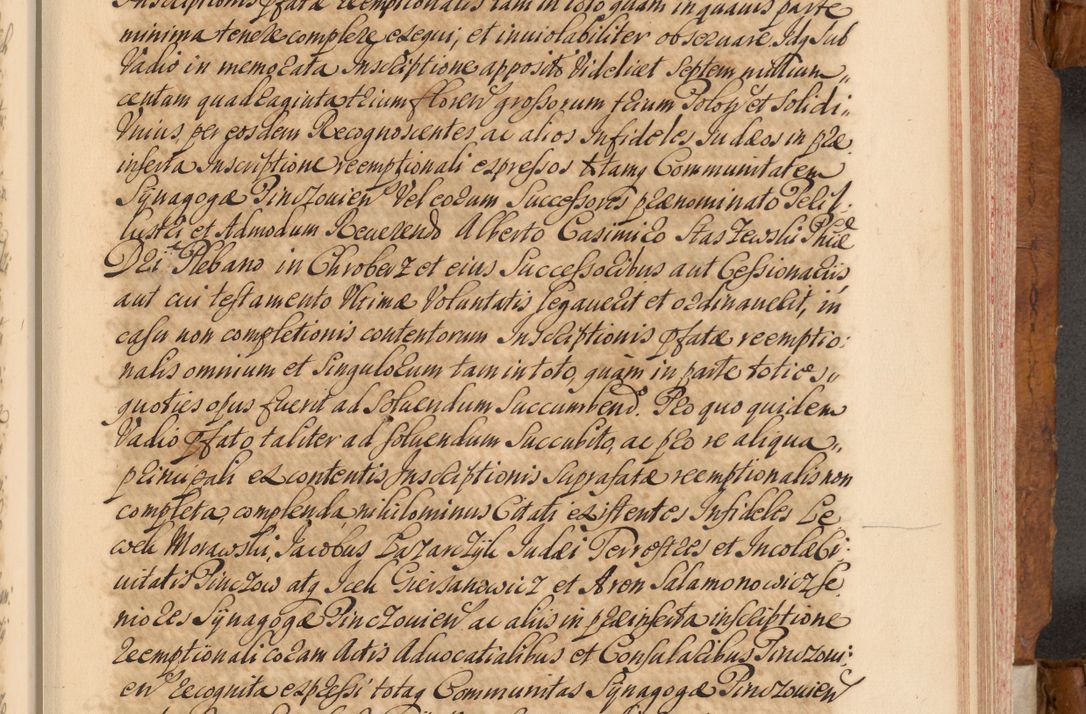 Inscriptionis pfatæ reemptionalis tam in toto quam in quavis parte
minima tenere complere exequi, et inviolabiliter observare. Idq Sub
Vadio in memorata Inscriptione apposito Videlicet Septem millium
centum quadraginta trium floren grossorum trium Polon et Solidi
Unius per eosdem Recognoscentes ac alios Infideles Judæos in præ
inserta Inscriptione reemptionali expressos totamq Communitatem
Synagogæ Pinczovien Vel eorum Successores prænominato Peril
lustri et Admodum Reverendo Alberto Casimiro Staszewski Phiæ
Dri Plebano in Chroberz et eius Successoribus aut Cessionariis
aut cui testamento Ultimæ Voluntatis legaverit et ordinaverit, in
casu non completionis contentorum Inscriptionis pfatæ reemptio:
nalis omnium et Singulorum tam in toto, quam in parte toties,,
quoties opus fuerit ad Solvendum Succumbendo. Pro quo quidem
Vadio pfato taliter ad solvendum Succubito, ac pro re aliqua,,
principali ex contentis Inscriptionis Suprafatæ reemptionalis non
completa, complenda nihilominus Citati existentes Infideles Le,
wek Morawski, Jacobus Lazarczyk Judæi Terrestres et Incolæ Ci:
vitatis Pinczow atq Icek Giersanowicz et Aron Salamonowicz Se
niores Synagogæ Pinczovien ac aliis in præinserta inscriptione
reemptionali coram Actis Advocatialibus et Consularibus Pinczovi:
en recognita expressi totaq Communitas Synagogæ Pinczovien